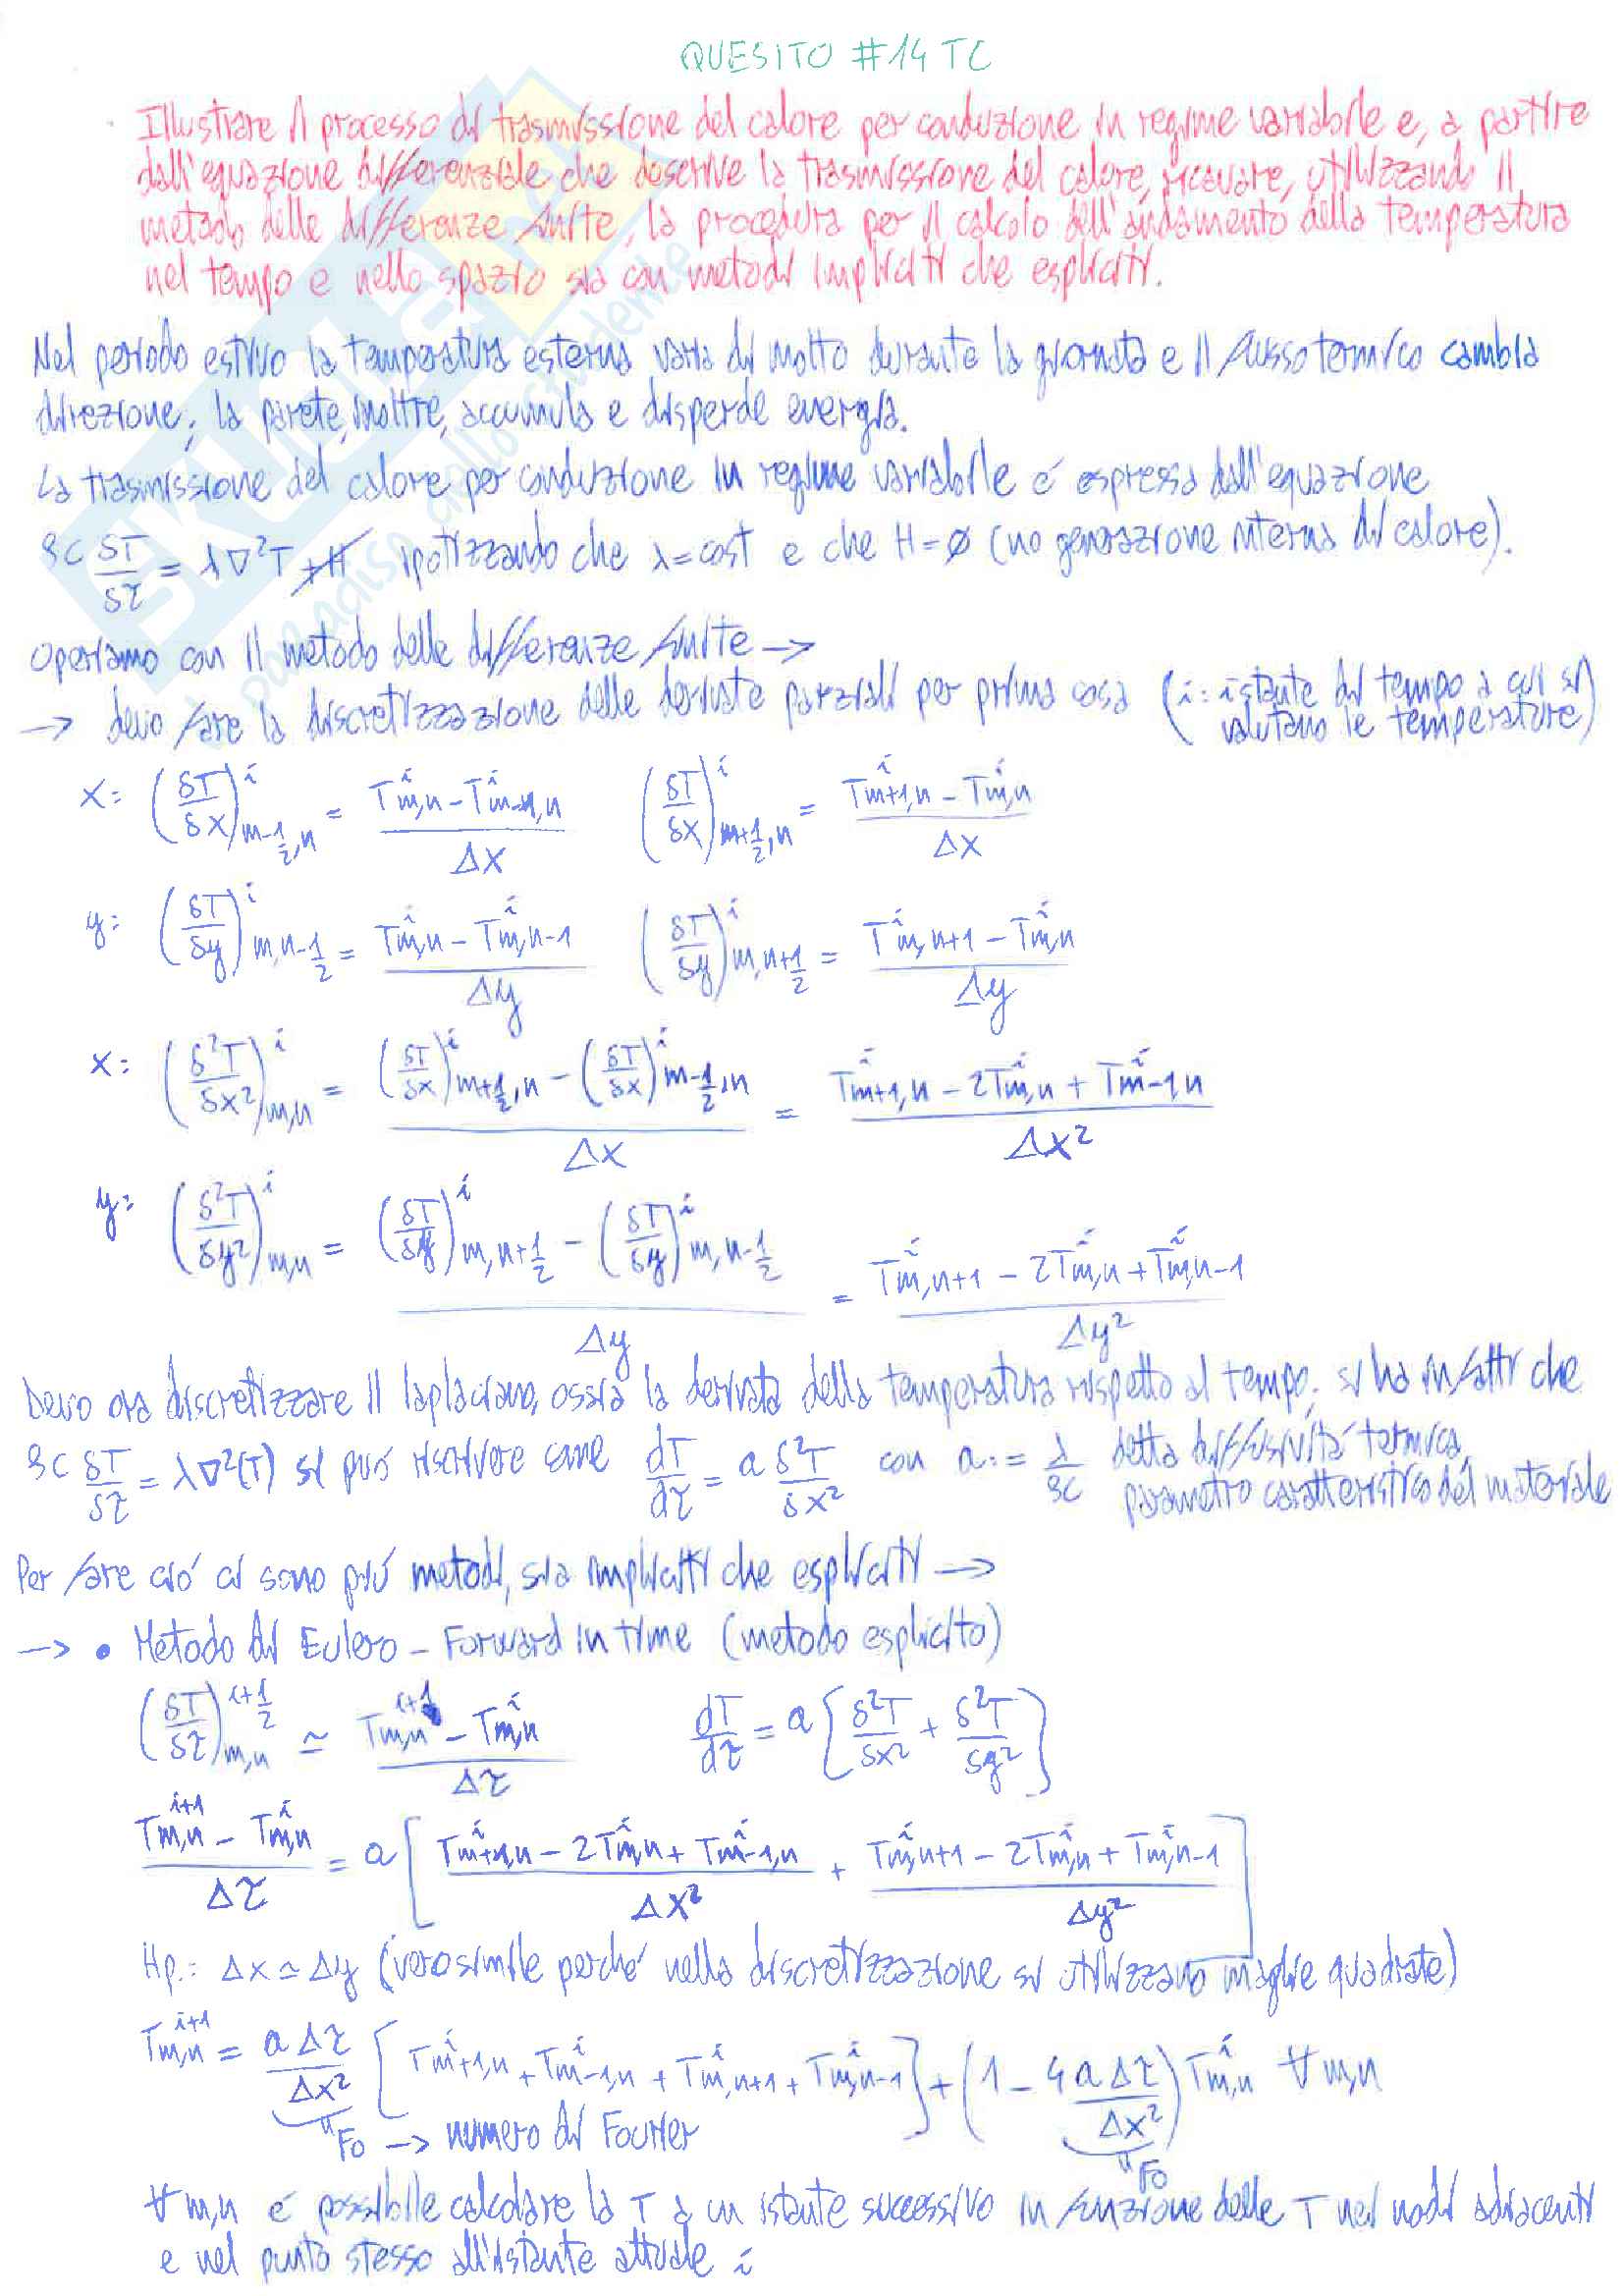 QUESITO #14 TC
Illustrare il processo di trasmissione del calore per conduzione in regime variabile e, a partire
dall'equazione differenziale che descrive la trasmissione del calore, ricavare, utilizzando il
metodo delle differenze finite, la procedura per il calcolo dell'andamento della temperatura
nel tempo e nello spazio sia con metodi impliciti che espliciti.
Nel periodo estivo la temperatura esterna varia di molto durante la giornata e il flusso termico cambia
direzione; la parete, inoltre, accumula e disperde energia.
La trasmissione del calore per conduzione in regime variabile é espressa dall'equazione
ρc δT/δτ = λ∇²T + H ipotizzando che λ=cost e che H=ø (no generazione interna di calore).
Operiamo con il metodo delle differenze finite →
→ devo fare la discretizzazione delle derivate parziali per prima cosa (i: istante di tempo a cui si
valutano le temperature)
x: (δT/δx)^i_m-1/2,n = (T^i_m,n - T^i_m-1,n)/Δx (δT/δx)^i_m+1/2,n = (T^i_m+1,n - T^i_m,n)/Δx
y: (δT/δy)^i_m,n-1/2 = (T^i_m,n - T^i_m,n-1)/Δy (δT/δy)^i_m,n+1/2 = (T^i_m,n+1 - T^i_m,n)/Δy
x: (δ²T/δx²)^i_m,n = ((δT/δx)^i_m+1/2,n - (δT/δx)^i_m-1/2,n)/Δx = (T^i_m+1,n - 2T^i_m,n + T^i_m-1,n)/Δx²
y: (δ²T/δy²)^i_m,n = ((δT/δy)^i_m,n+1/2 - (δT/δy)^i_m,n-1/2)/Δy = (T^i_m,n+1 - 2T^i_m,n + T^i_m,n-1)/Δy²
Devo ora discretizzare il laplaciano, ossia la derivata della temperatura rispetto al tempo; si ha infatti che
ρc δT/δτ = λ∇²(T) si puó riscrivere come dT/dτ = a δ²T/δx² con a:= λ/ρc detta diffusivitá termica,
parametro caratteristico del materiale
Per fare ció ci sono piú metodi, sia impliciti che espliciti →
→ • Metodo di Eulero - Forward in time (metodo esplicito)
(δT/δτ)^i+1/2_m,n ≃ (T^i+1_m,n - T^i_m,n)/Δτ dT/dτ = a [δ²T/δx² + δ²T/δy²]
(T^i+1_m,n - T^i_m,n)/Δτ = a [(T^i_m+1,n - 2T^i_m,n + T^i_m-1,n)/Δx² + (T^i_m,n+1 - 2T^i_m,n + T^i_m,n-1)/Δy²]
Hp.: Δx ≃ Δy (verosimile perché nella discretizzazione si utilizzano maglie quadrate)
T^i+1_m,n = aΔτ/Δx² [T^i_m+1,n + T^i_m-1,n + T^i_m,n+1 + T^i_m,n-1] + (1 - 4 aΔτ/Δx²) T^i_m,n ∀ m,n
" Fo → numero di Fourier " Fo
∀ m,n é possibile calcolare la T a un istante successivo in funzione delle T nei nodi adiacenti
e nel punto stesso all'istante attuale i
SKUOLA.net
il paradiso dello studente